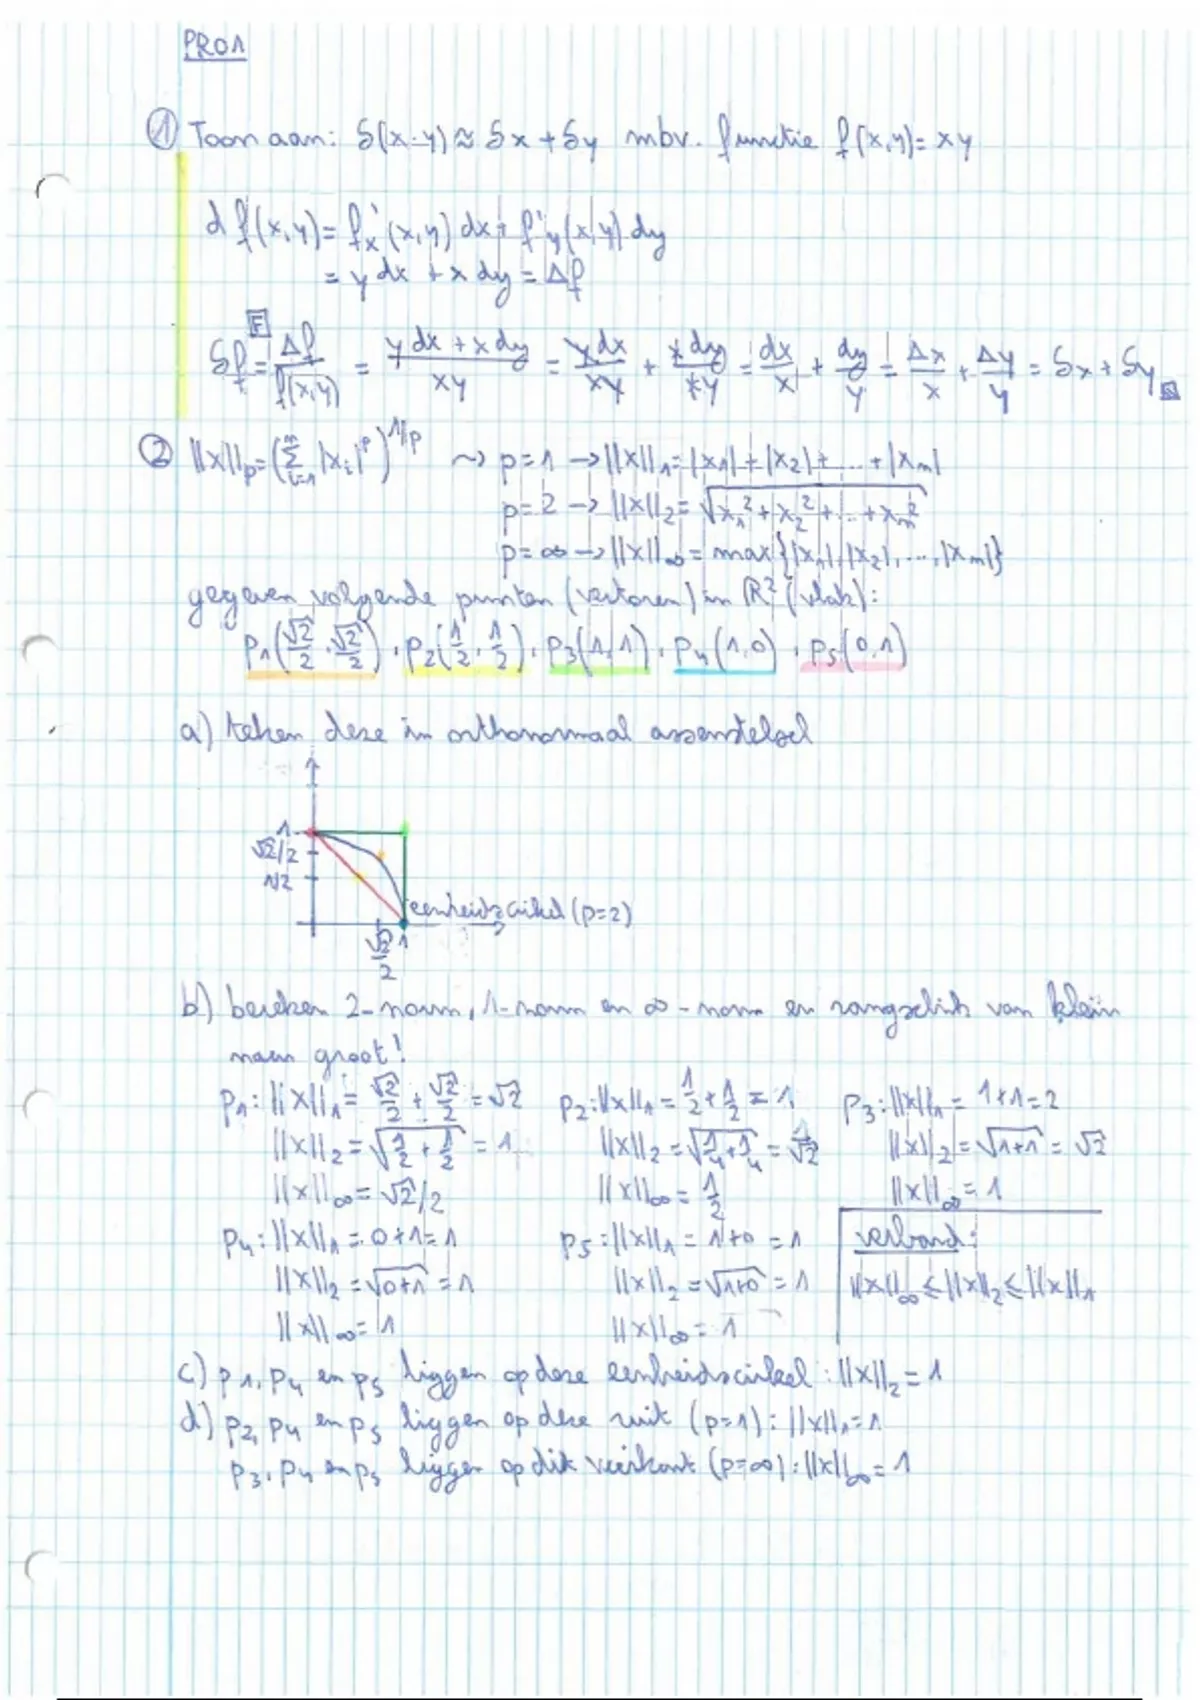 PRO1
① Toon aan: δ(x·y) ≈ δx + δy mbv. functie f(x,y) = xy
df(x,y) = f'x(x,y) dx + f'y(x,y) dy
= y dx + x dy = Δf
δf =[F] Δf/f(x,y) = (y dx + x dy)/xy = y dx/xy + x dy/xy = dx/x + dy/y = Δx/x + Δy/y = δx + δy
② ||x||p = (Σ i=1 n |xi|^p)^1/p ~> p=1 → ||x||1 = |x1| + |x2| + ... + |xn|
p=2 → ||x||2 = √(x1² + x2² + ... + xn²)
p=∞ → ||x||∞ = max{|x1|, |x2|, ..., |xn|}
gegeven volgende punten (vectoren) in ℝ² (vlak):
P1(√2/2, √2/2), P2(1/2, 1/2), P3(1,1), P4(1,0), P5(0,1)
a) teken deze in orthonormaal assenstelsel
1
√2/2
1/2
eenheidscirkel (p=2)
√2/2 1
b) bereken 2-norm, 1-norm en ∞-norm en rangschik van klein
naar groot!
P1: ||x||1 = √2/2 + √2/2 = √2 P2: ||x||1 = 1/2 + 1/2 = 1 P3: ||x||1 = 1+1 = 2
||x||2 = √(1/2 + 1/2) = 1 ||x||2 = √(1/4 + 1/4) = 1/√2 ||x||2 = √(1+1) = √2
||x||∞ = √2/2 ||x||∞ = 1/2 ||x||∞ = 1
P4: ||x||1 = 0+1 = 1 P5: ||x||1 = 1+0 = 1 verband:
||x||2 = √(0+1) = 1 ||x||2 = √(1+0) = 1 ||x||∞ ≤ ||x||2 ≤ ||x||1
||x||∞ = 1 ||x||∞ = 1
c) P1, P4 en P5 liggen op deze eenheidscirkel: ||x||2 = 1
d) P2, P4 en P5 liggen op deze ruit (p=1): ||x||1 = 1
P3, P4 en P5 liggen op dit vierkant (p=∞): ||x||∞ = 1